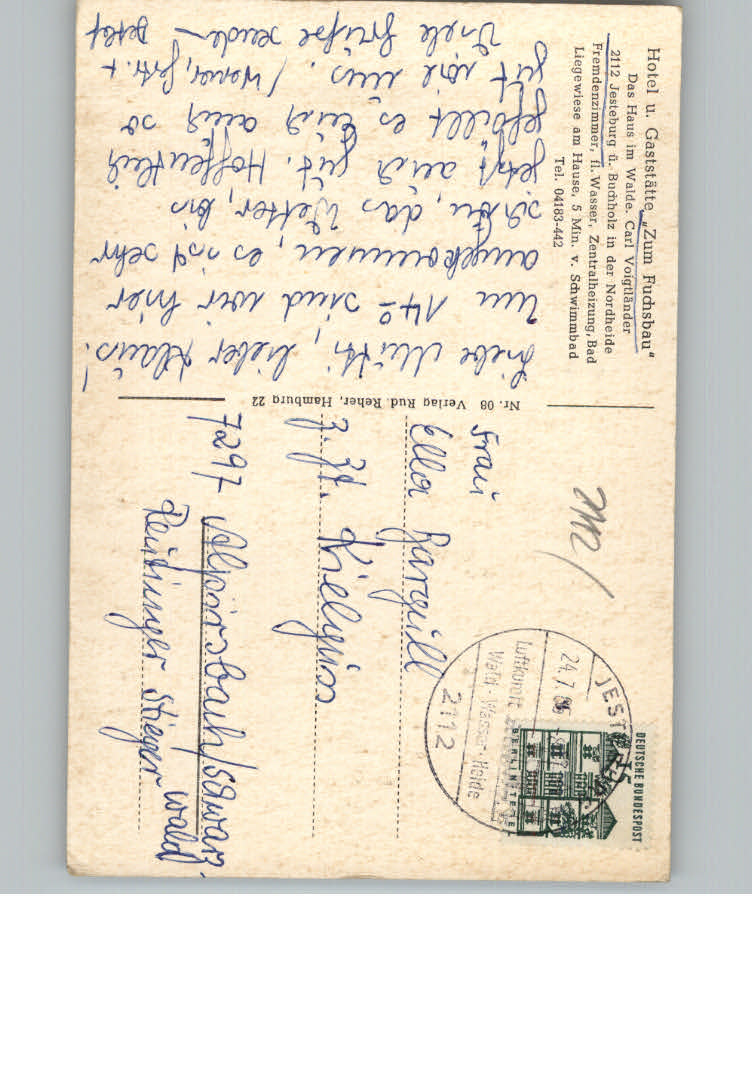 Hotel u. Gaststätte „Zum Fuchsbau"
Das Haus im Walde. Carl Voigtländer
2112 Jesteburg ü. Buchholz in der Nordheide
Fremdenzimmer, fl. Wasser, Zentralheizung, Bad
Liegewiese am Hause, 5 Min. v. Schwimmbad
Tel. 04183-442
Liebe Mutti, lieber Klaus!
Um 14° sind wir hier
angekommen, es ist sehr
schön, das Wetter, bis
jetzt auch gut. Hoffentlich
gefällt es Euch auch so
gut wie uns.
Viele Grüße senden
Nr. 08 Verlag Rud. Reher, Hamburg 22
2112
JESTEBURG
24.7.
Luftkurort
Wald-Wasser-Heide
2112
DEUTSCHE BUNDESPOST
15
BERLIN TEGEL
Frau
Ella
z. Zt.
7297 Alpirsbach/Schwarz-
wald
Reutinger Stieger